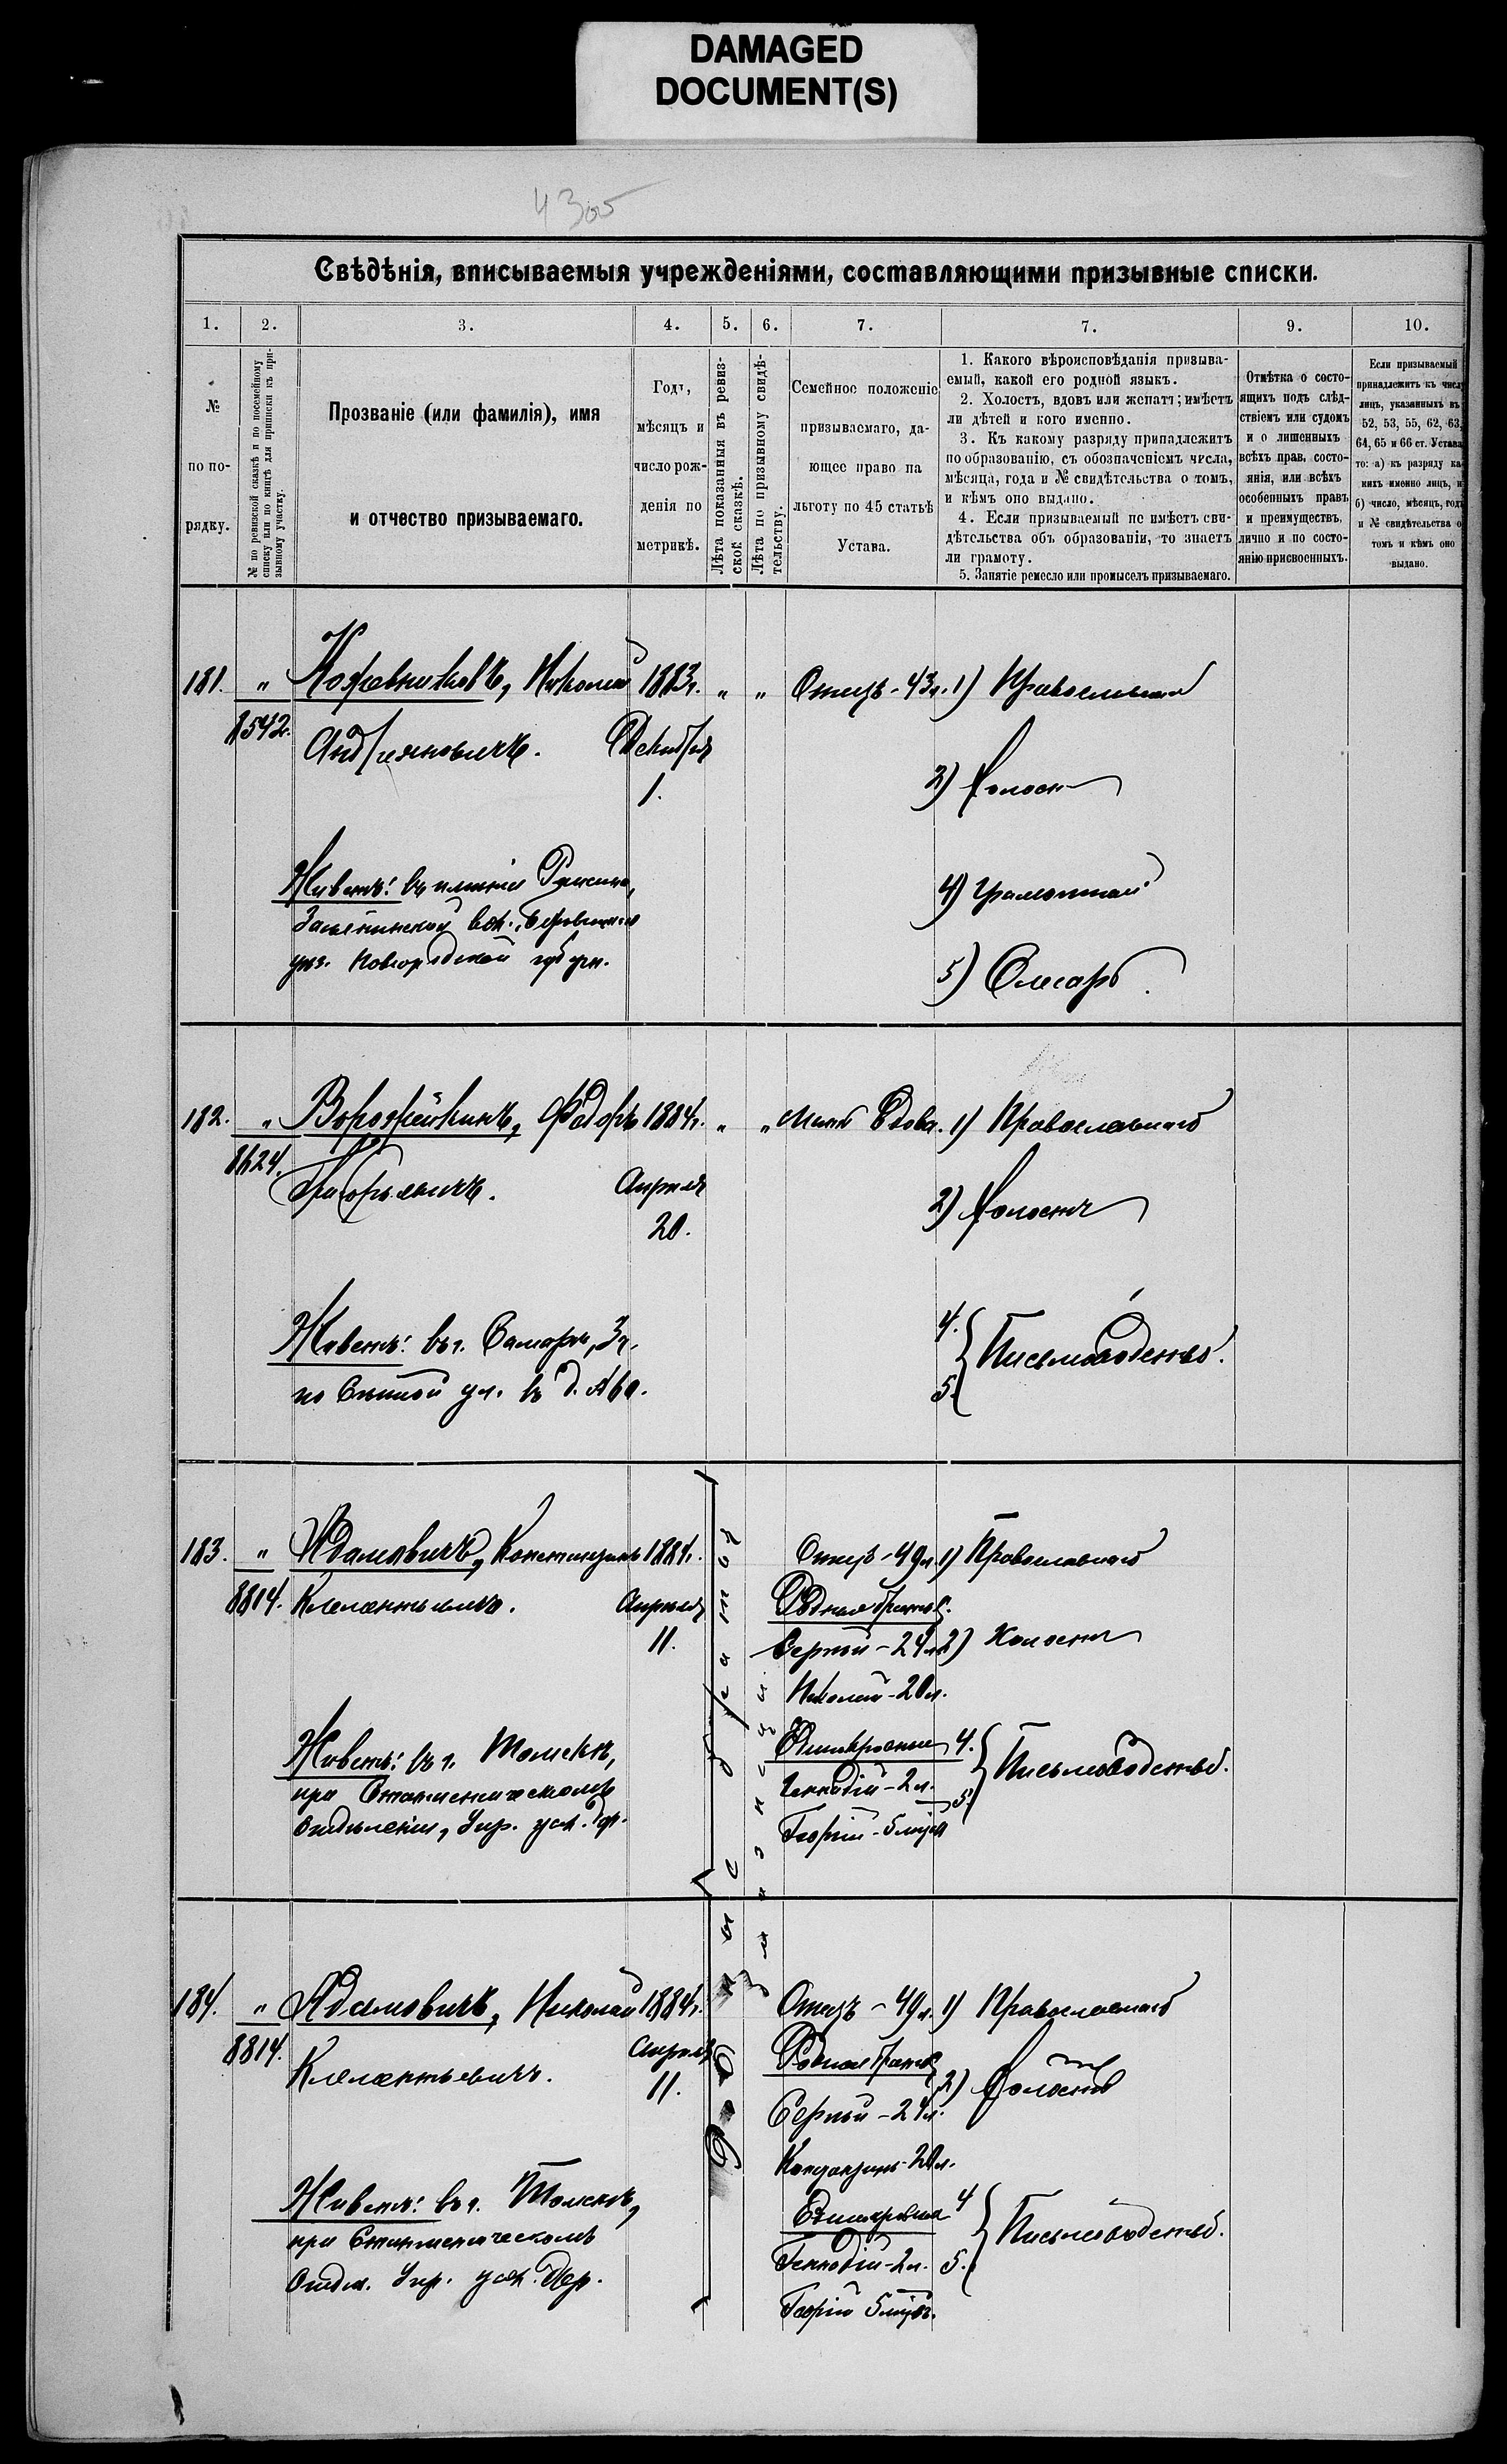 DAMAGED
DOCUMENT(S)
Свѣдѣнія, вписываемыя учрежденіями, составляющими призывные списки.
1. 2. 3. 4. 5. 6. 7. 7. 9. 10.
№
по по-
рядку.
№ по ревизской сказкѣ и по посемейному
списку или по книгѣ для приписки къ при-
зывному участку.
Прозваніе (или фамилія), имя
и отчество призываемаго.
Годъ,
мѣсяцъ и
число рож-
денія по
метрикѣ.
Лѣта показанныя въ ревиз-
ской сказкѣ.
Лѣта по призывному свидѣ-
тельству.
Семейное положеніе
призываемаго, да-
ющее право на
льготу по 45 статьѣ
Устава.
1. Какого вѣроисповѣданія призыва-
емый, какой его родной языкъ.
2. Холостъ, вдовъ или женатъ; имѣетъ
ли дѣтей и кого именно.
3. Къ какому разряду принадлежитъ
по образованію, съ обозначеніемъ числа,
мѣсяца, года и № свидѣтельства о томъ,
и кѣмъ оно выдано.
4. Если призываемый не имѣетъ сви-
дѣтельства объ образованіи, то знаетъ
ли грамоту.
5. Занятіе ремесло или промыселъ призываемаго.
Отмѣтка о состо-
ящихъ подъ слѣд-
ствіемъ или судомъ
и о лишенныхъ
всѣхъ правъ состо-
янія, или всѣхъ
особенныхъ правъ
и преимуществъ,
лично и по состо-
янію присвоенныхъ.
Если призываемый
принадлежитъ къ числу
лицъ, указанныхъ въ
52, 53, 55, 62, 63,
64, 65 и 66 ст. Устава
то: а) къ разряду ка-
кихъ именно лицъ, и
б) число, мѣсяцъ, годъ
и № свидѣтельства о
томъ и кѣмъ оно
выдано.
181. " Кожевниковъ, Николай 1883г. " " Отецъ - 43л. 1) Православный
8542. Андріяновичъ. Декабря
1.
2) Холостъ
Живетъ: въ имѣніи
вол.,
уѣз. Новгородской губерн.
4) Грамотный
5) Слесарь.
182. " Ворожейкинъ, Ѳедоръ 1884г. " " Мать вдова. 1) Православнаго
8624. Григорьевичъ. Апрѣля
20.
2) Холостъ
Живетъ: въ г. Самарѣ, 3ч.
по Сѣнной ул. въ д.
4.
5. Письмоводство.
183. " Адамовичъ, Константинъ 1884г. Отецъ - 49л. 1) Православнаго
8814. Клементьевичъ. Апрѣля
11.
Родные братья:
Сергѣй - 24л. 2) Холостъ
Николай - 20л.
Единокровные
Геннадій - 2л.
Георгій - 5 мѣс.
4.
5. Письмоводство.
Живетъ: въ г. Томскѣ,
при Статистическомъ
Отдѣленіи, Упр. жел. дор.
близнецы
184. " Адамовичъ, Николай 1884г. Отецъ - 49л. 1) Православнаго
8814. Клементьевичъ. Апрѣля
11.
Родные братья
Сергѣй - 24л. 2) Холостъ
Константинъ - 20л.
Единокровные
Геннадій - 2л.
Георгій 5 мѣс.
4
5. Письмоводство.
Живетъ: въ г. Томскѣ,
при Статистическомъ
Отдѣл. Упр. жел. дор.